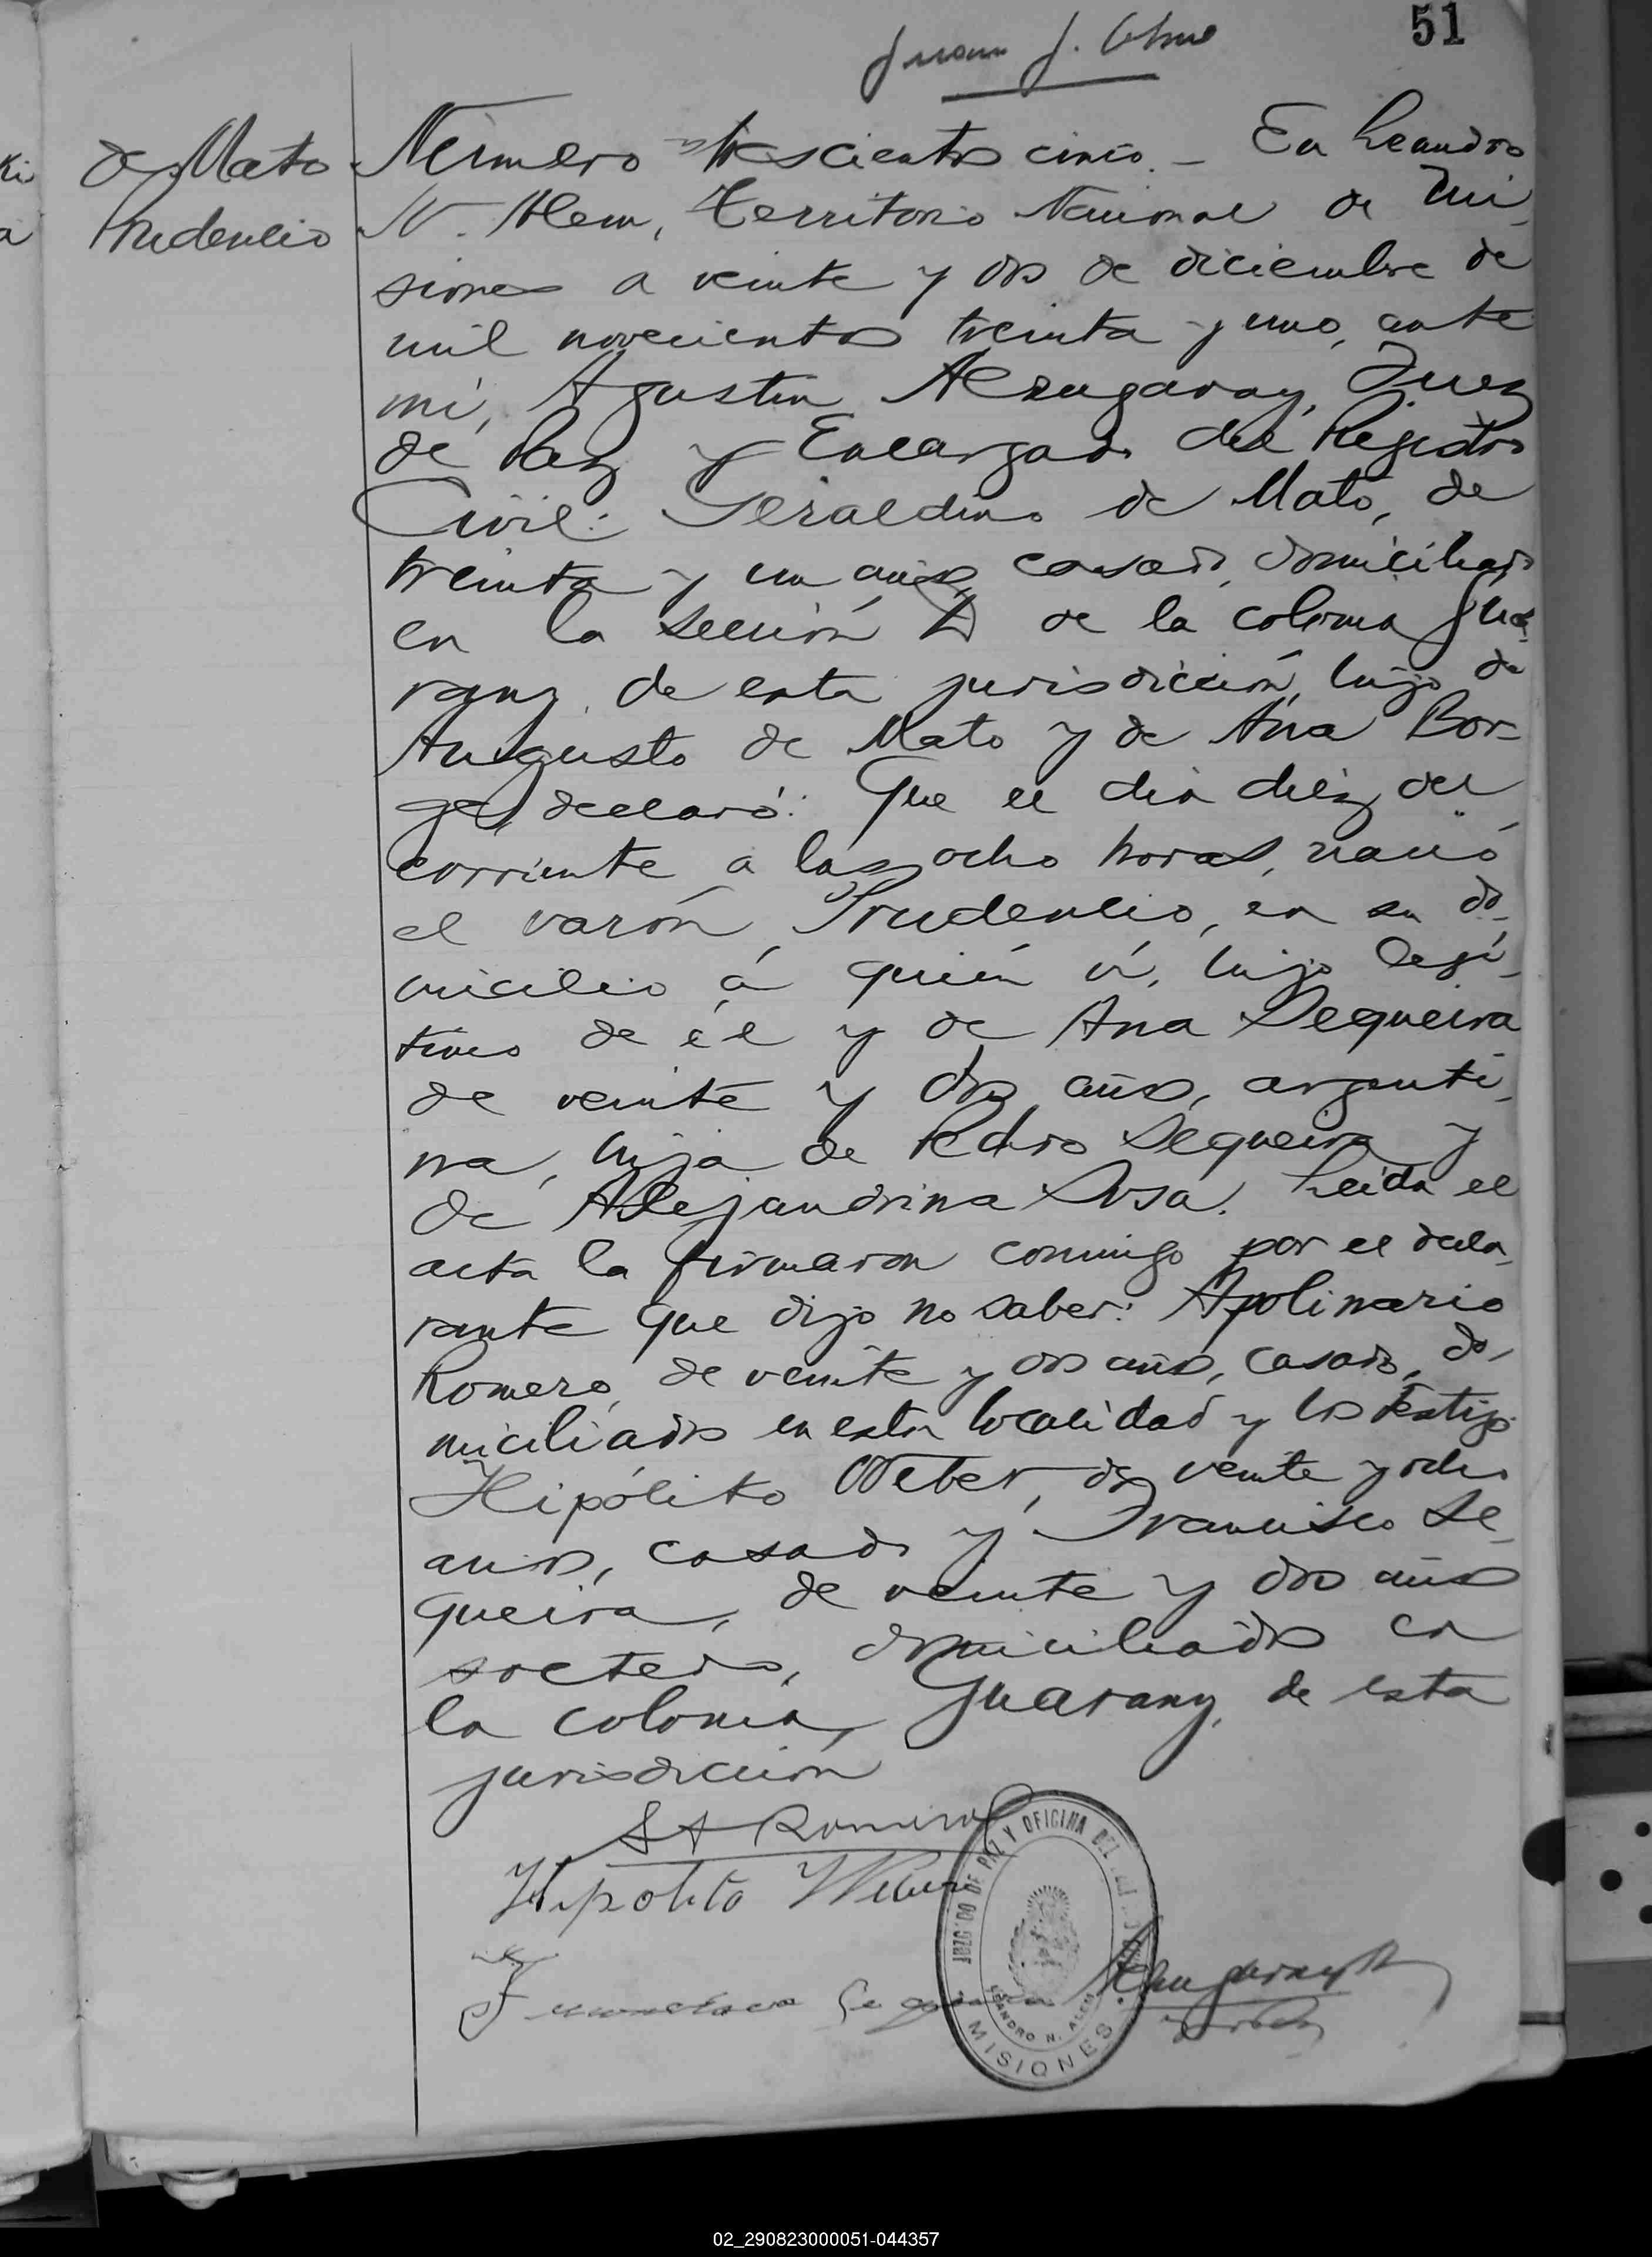 51
Juan J.
de Mato
Prudencio
Número trescientos cinco. – En Leandro
N. Alem, Territorio Nacional de Mi-
siones a veinte y dos de diciembre de
mil novecientos treinta y uno, ante
mí, Agustin Alzugaray, Juez
de Paz y Encargado del Registro
Civil: Geraldino de Mato, de
treinta y un años, casado, domiciliado
en la sección D de la colonia Gua-
rany, de esta jurisdicción, hijo de
Augusto de Mato y de Ana Bor-
ge, declaró: Que el día diez del
corriente a las ocho horas, nació
el varón, Prudencio, en su do-
micilio á quién ví, hijo legí-
timo de él y de Ana Sequeira
de veinte y dos años, argenti-
na, hija de Pedro Sequeira y
de Alejandrina Sosa. Leída el
acta la firmaron conmigo por el decla-
rante que dijo no saber: Apolinario
Romero, de veinte y dos años, casado, do-
miciliado en esta localidad y los testigos
Hipólito Weber, de veinte y ocho
años, casado y Francisco Se-
queira, de veinte y dos años
soltero, domiciliados en
la colonia, Guarany, de esta
jurisdicción
Romero
Hipolito Weber
JUZGADO DE PAZ Y OFICINA DEL
LEANDRO N. ALEM
MISIONES
Alzugaray
02_290823000051-044357